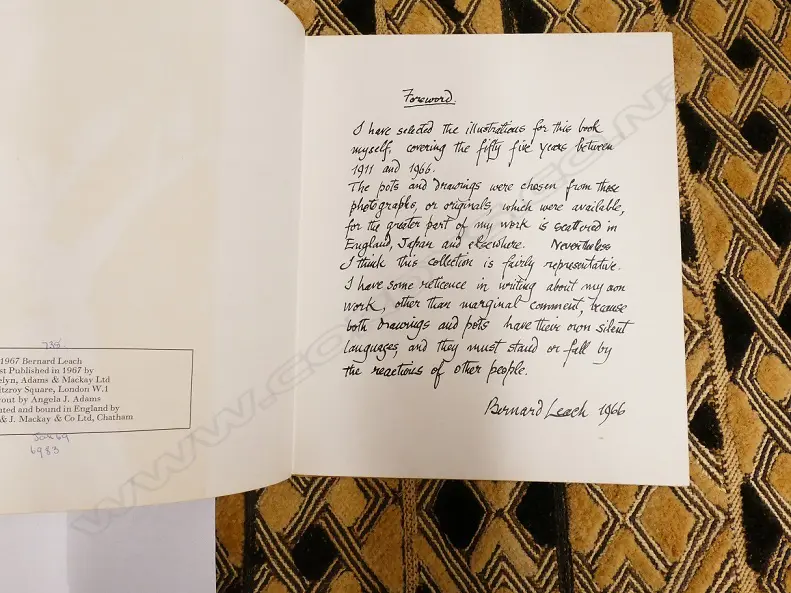 738
1967 Bernard Leach
st Published in 1967 by
elyn, Adams & Mackay Ltd
itzroy Square, London W.1
yout by Angela J. Adams
nted and bound in England by
& J. Mackay & Co Ltd, Chatham
6983
Foreword.
I have selected the illustrations for this book
myself, covering the fifty five years between
1911 and 1966.
The pots and drawings were chosen from those
photographs, or originals, which were available,
for the greater part of my work is scattered in
England, Japan and elsewhere. Nevertheless
I think this collection is fairly representative.
I have some reticence in writing about my own
work, other than marginal comment, because
both drawings and pots have their own silent
languages, and they must stand or fall by
the reactions of other people.
Bernard Leach 1966